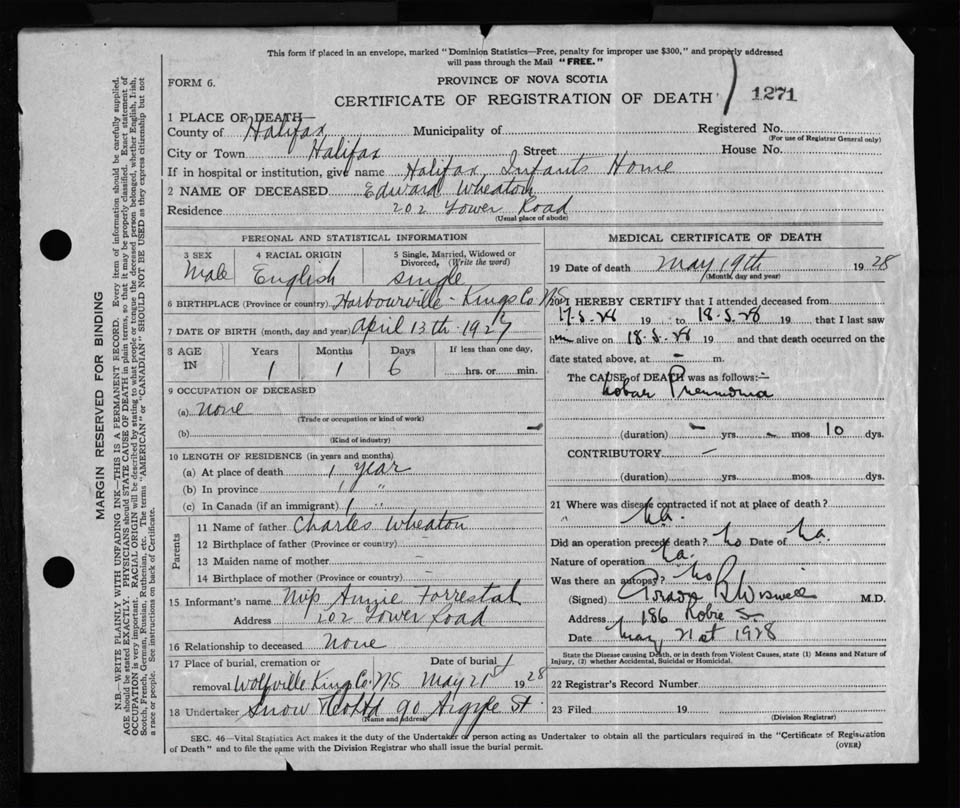 This form if placed in an envelope, marked "Dominion Statistics—Free, penalty for improper use $300," and properly addressed
will pass through the Mail "FREE."
FORM 6.
PROVINCE OF NOVA SCOTIA
CERTIFICATE OF REGISTRATION OF DEATH
1271
1 PLACE OF DEATH—
County of Halifax Municipality of Registered No.
(For use of Registrar General only)
City or Town Halifax Street House No.
If in hospital or institution, give name Halifax Infants Home
2 NAME OF DECEASED Edward Wheaton
Residence 202 Tower Road
(Usual place of abode)
PERSONAL AND STATISTICAL INFORMATION
3 SEX Male
4 RACIAL ORIGIN English
5 Single, Married, Widowed or Divorced, (Write the word) Single
6 BIRTHPLACE (Province or country) Harbourville - Kings Co NS
7 DATE OF BIRTH (month, day and year) April 13th 1927
8 AGE IN Years Months Days If less than one day,
1 1 6 hrs. or min.
9 OCCUPATION OF DECEASED
(a) None
(Trade or occupation or kind of work)
(b)
(Kind of industry)
10 LENGTH OF RESIDENCE (in years and months)
(a) At place of death 1 year
(b) In province 1 "
(c) In Canada (if an immigrant) 1 "
Parents
11 Name of father Charles Wheaton
12 Birthplace of father (Province or country) —
13 Maiden name of mother —
14 Birthplace of mother (Province or country) —
15 Informant's name Annie Forrestal
Address 202 Tower Road
16 Relationship to deceased None
17 Place of burial, cremation or Date of burial
removal Wolfville Kings Co. NS May 21st 1928
18 Undertaker Snow & Co Ltd 90 Argyle St
(Name and address)
MEDICAL CERTIFICATE OF DEATH
19 Date of death May 19th 1928
(Month, day and year)
20 I HEREBY CERTIFY that I attended deceased from
17.5.28 19 to 18.5.28 19 that I last saw
him alive on 18.5.28 19 and that death occurred on the
date stated above, at — m.
The CAUSE of DEATH was as follows:—
Lobar Pneumonia
(duration) — yrs. — mos. 10 dys.
CONTRIBUTORY —
(duration) yrs. mos. dys.
21 Where was disease contracted if not at place of death?
Did an operation precede death? No Date of
Nature of operation
Was there an autopsy? No
(Signed) M.D.
Address 186 Robie St
Date May 21st 1928
State the Disease causing Death, or in death from Violent Causes, state (1) Means and Nature of
Injury, (2) whether Accidental, Suicidal or Homicidal.
22 Registrar's Record Number
23 Filed 19
(Division Registrar)
SEC. 46—Vital Statistics Act makes it the duty of the Undertaker or person acting as Undertaker to obtain all the particulars required in the "Certificate of Registration
of Death" and to file the same with the Division Registrar who shall issue the burial permit.
(OVER)
MARGIN RESERVED FOR BINDING
N.B. WRITE PLAINLY WITH UNFADING INK—THIS IS A PERMANENT RECORD. Every item of information should be carefully supplied.
AGE should be stated EXACTLY. PHYSICIANS should STATE CAUSE OF DEATH in plain terms, so that it may be properly classified. Exact statement of
OCCUPATION is very important. RACIAL ORIGIN will be described by stating to what people or tongue the deceased person belonged, whether English, Irish,
Scotch, French, German, Russian, Ruthenian, etc. The terms "AMERICAN" or "CANADIAN" SHOULD NOT BE USED as they express citizenship but not
a race or people. See instructions on back of Certificate.